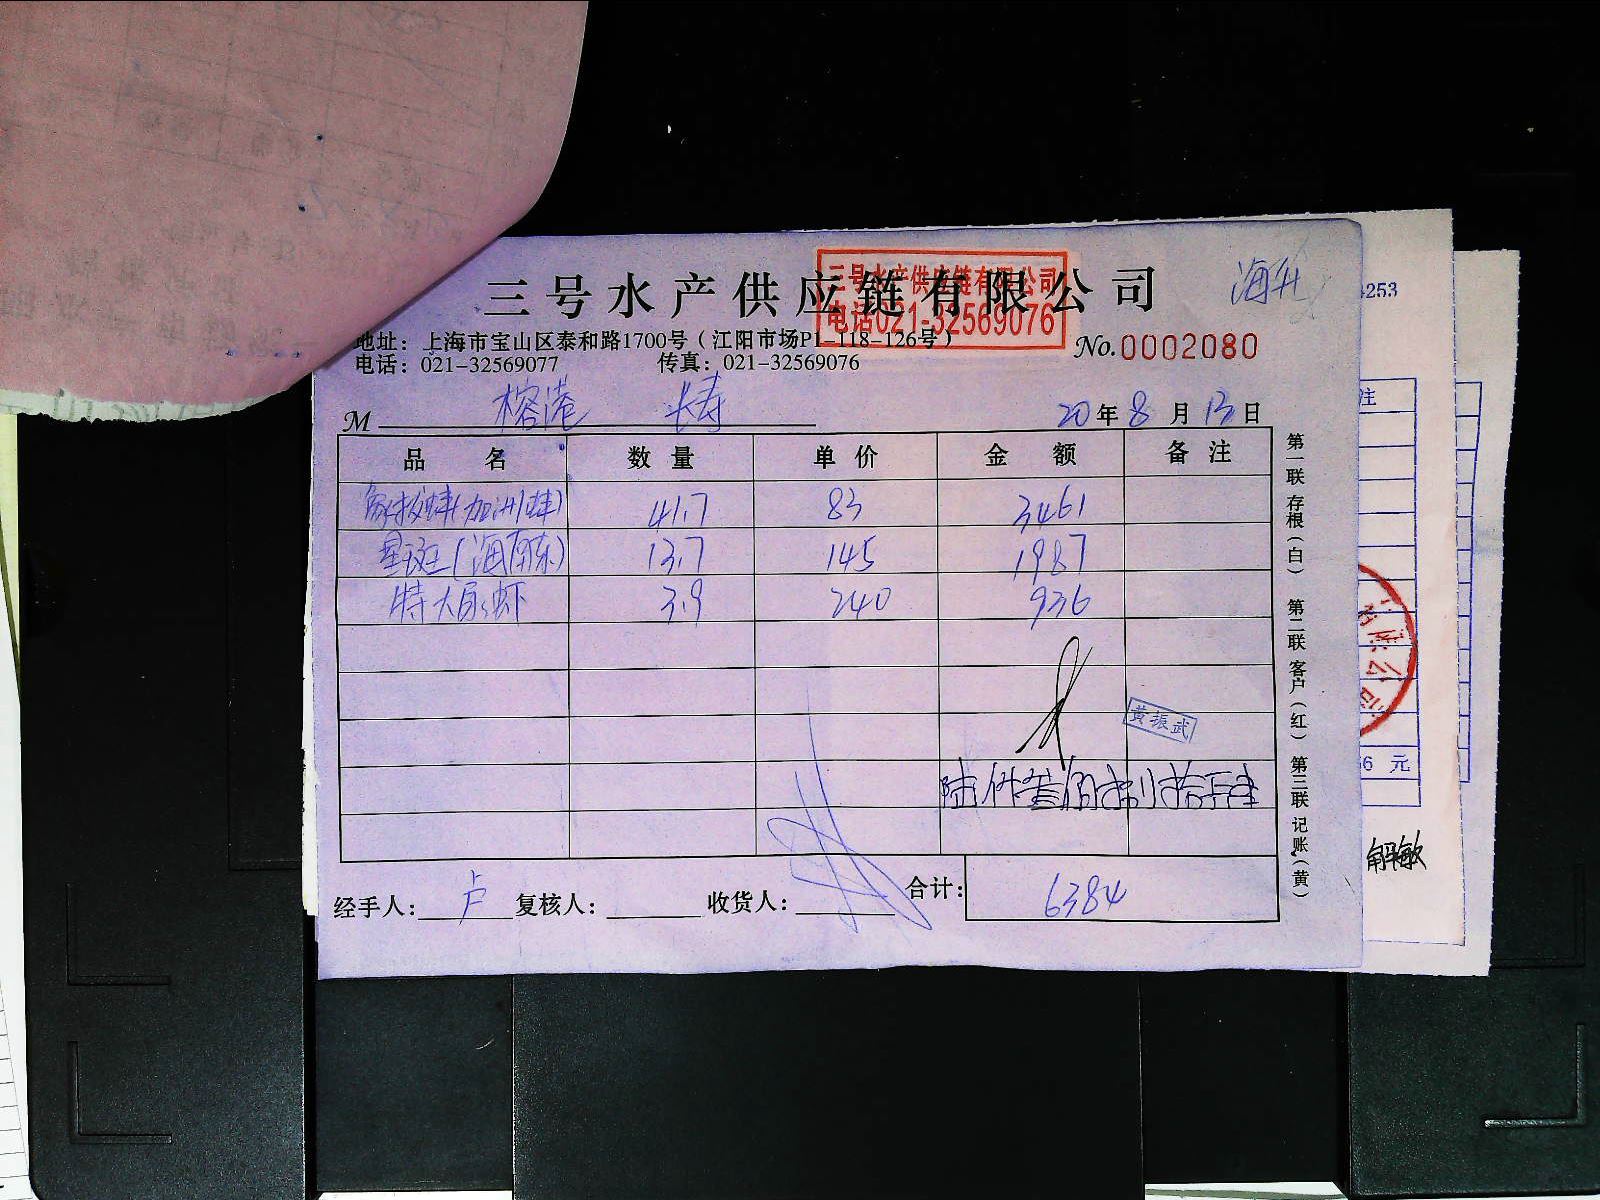 三号水产供应链有限公司
三号水产供应链有限公司
电话021-32569076
海
4253
地址：上海市宝山区泰和路1700号（江阳市场P1-118-126号）
No.0002080
电话：021-32569077 传真：021-32569076
M 榕港 长寿
20年8月13日
品名 数量 单价 金额 备注
象拔蚌(加州蚌) 41.7 83 3461
星斑(海南东) 13.7 145 1987
特大尿虾 3.9 240 936
黄振武
陆仟叁佰捌拾肆
经手人：卢 复核人： 收货人： 合计：6384
第一联 存根（白） 第二联 客户（红） 第三联 记账（黄）
注
有限公司
6 元
解敏